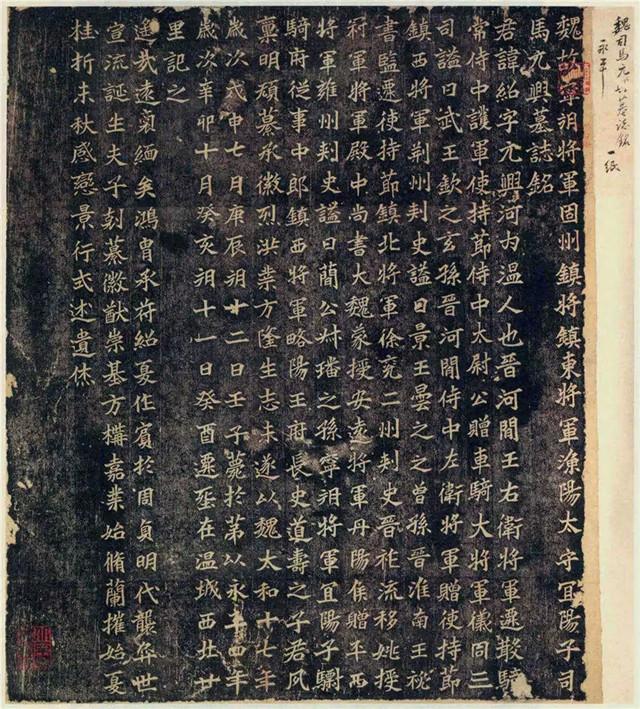 魏司馬元興墓誌銘 一紙
永平
魏故寧朔將軍固州鎮將鎮東將軍漁陽太守宜陽子司
馬元興墓誌銘
君諱紹字元興河內溫人也晉河間王右衛將軍遷散騎
常侍中護軍使持節侍中太尉公贈車騎大將軍儀同三
司謚曰武王欽之玄孫晉河間侍中左衛將軍贈使持節
鎮西將軍荊州刾史謚曰景王曇之之曾孫晉淮南王秘
書監遷使持節鎮北將軍徐兖二州刾史晉祚流移姚授
冠軍將軍殿中尚書大魏蒙授安遠將軍丹陽侯贈平西
將軍雍州刾史謚曰蕳公叔璠之孫寧朔將軍宜陽子驃
騎府從事中郎鎮西將軍略陽王府長史道壽之子君夙
稟明頎纂承徽烈洪業方隆生志未遂以魏太和十七年
歲次戊申七月庚辰朔十二日壬子薨於第以永平四年
歲次辛卯十月癸亥朔十一日癸酉遷塟在溫城西北廿
里記之
遙哉遠裔緬矣鴻胄承符紹夏作賓於周貞明代襲弈世
宣流誕生夫子剋纂徽猷崇基方構嘉業始脩蘭摧始夏
桂折未秋感戀景行式述遺休